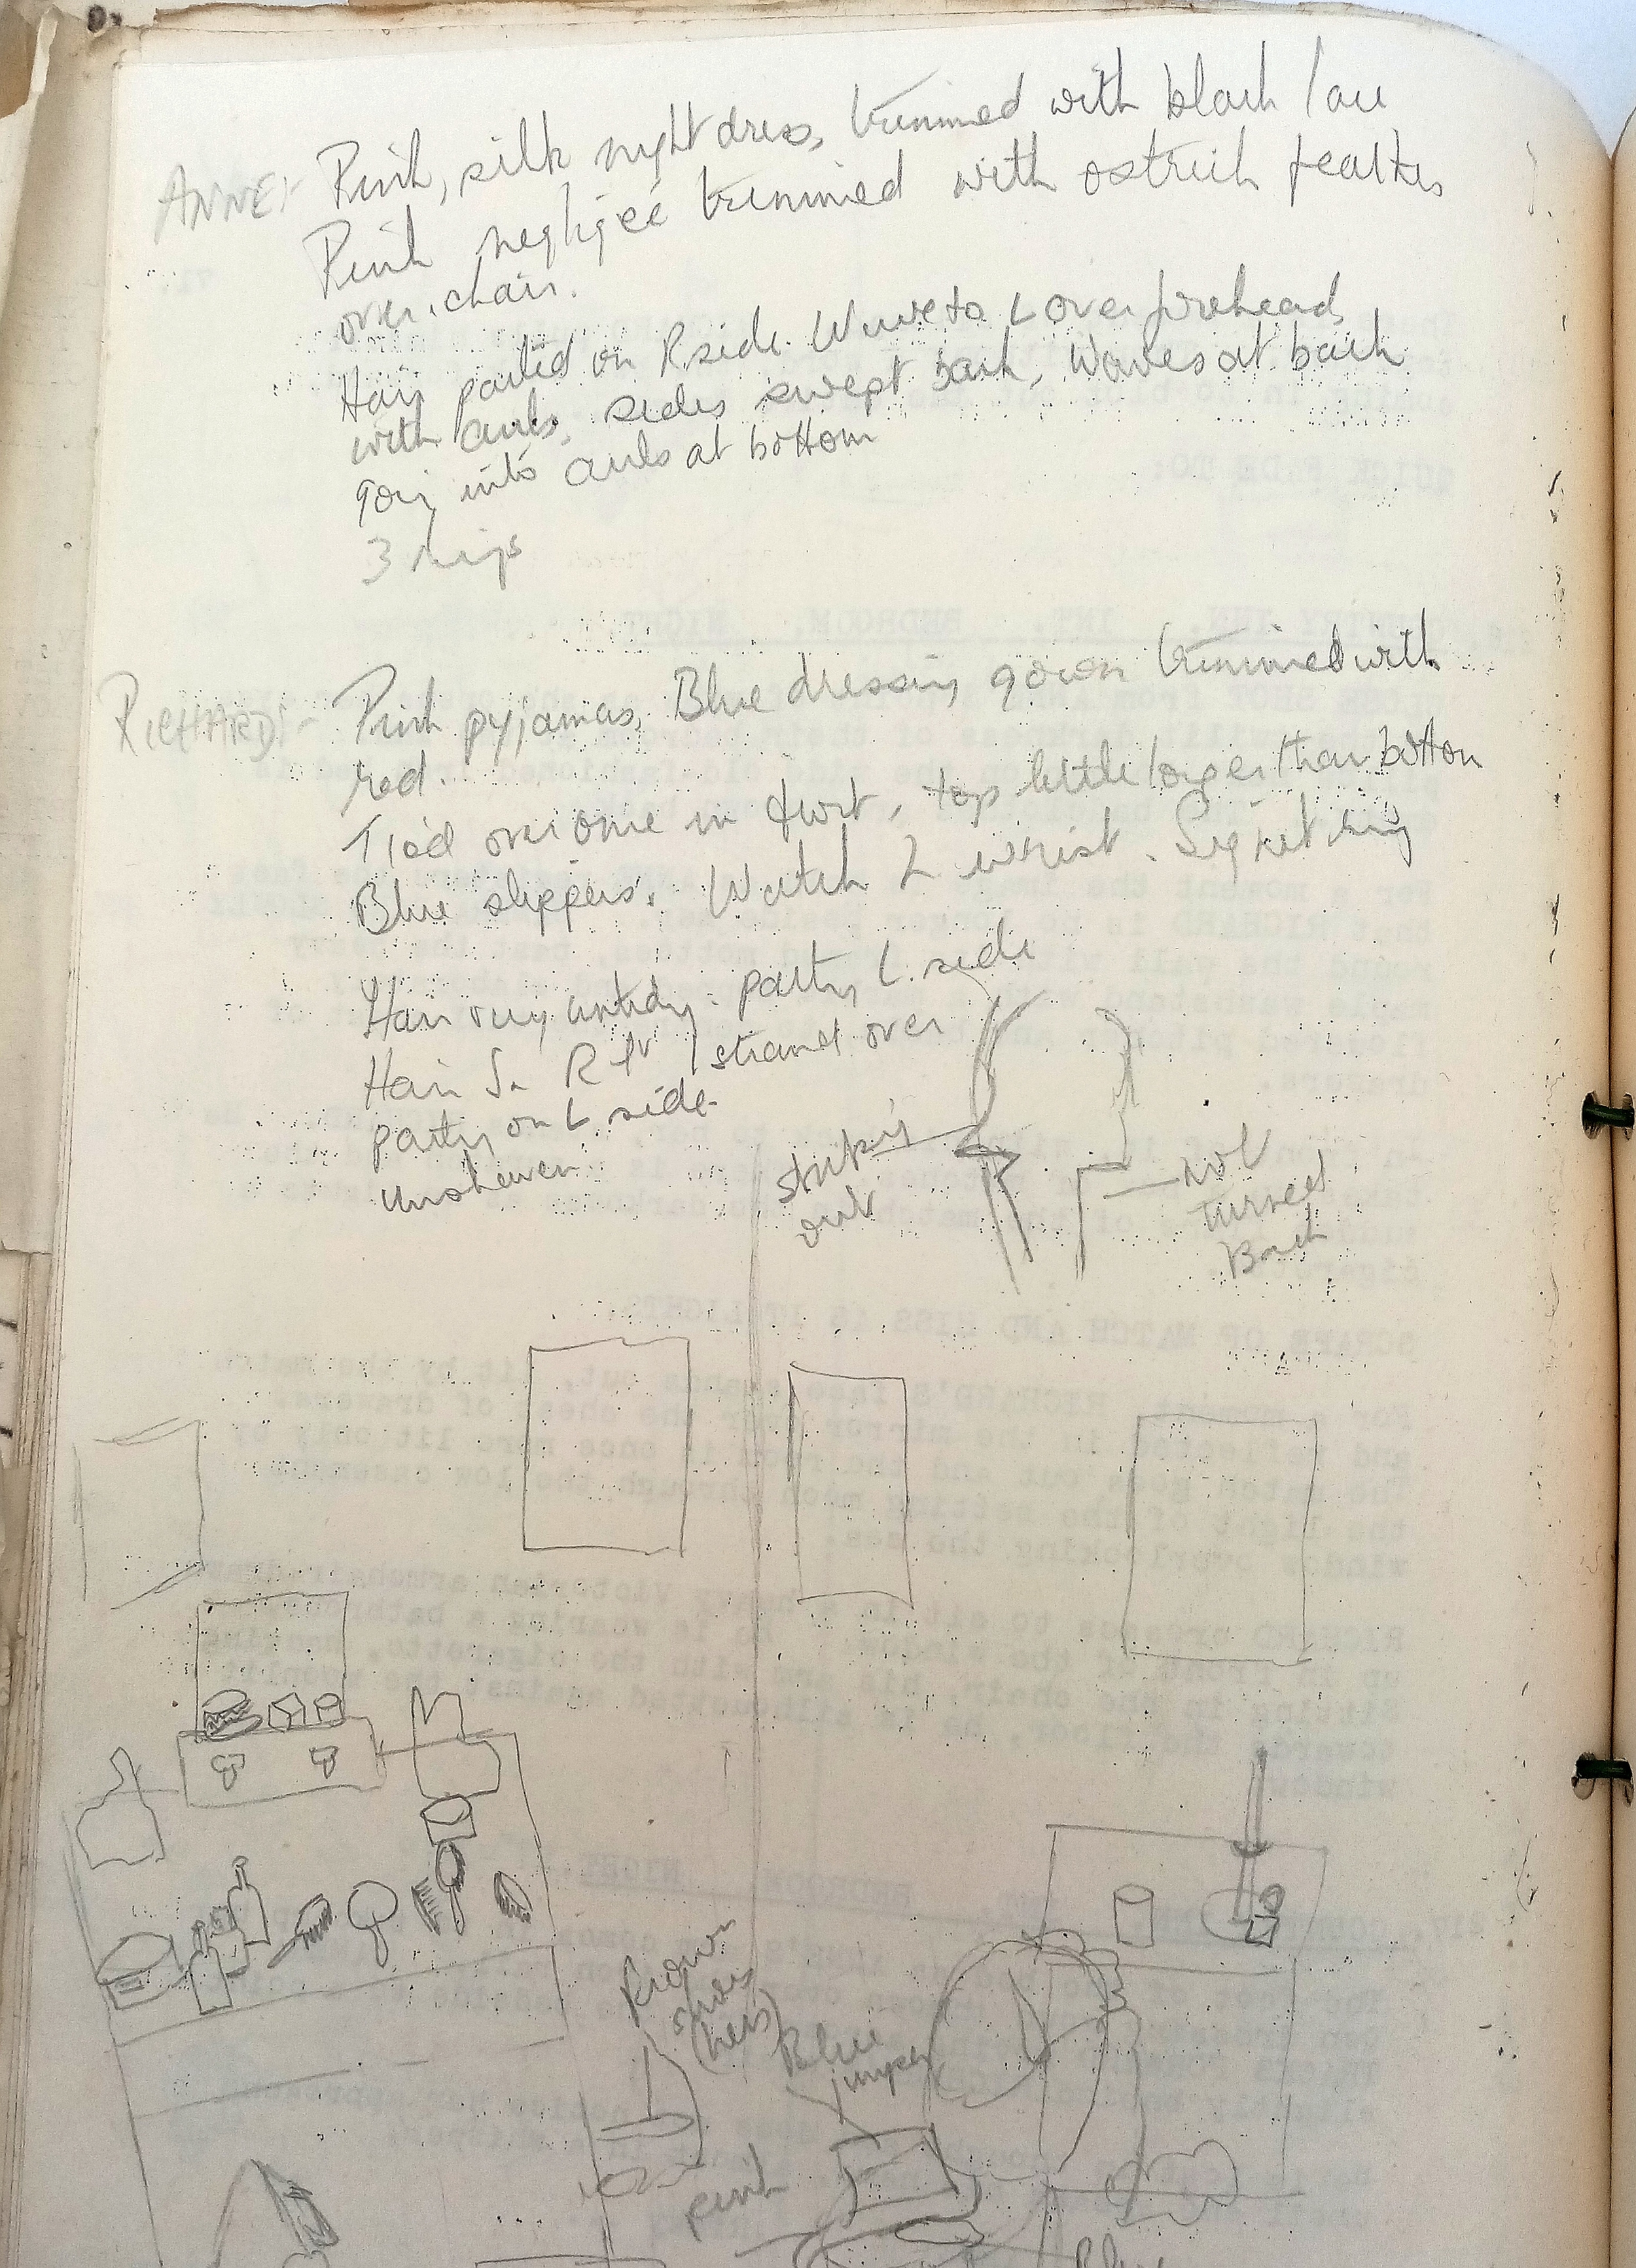 ANNE:- Pink, silk nightdress, trimmed with black lace
Pink negligée trimmed with ostrich feathers
over chair.
Hair parted on R side. Wave to L over forehead
with curls, sides swept back, Waves at back
going into curls at bottom
3 rings
RICHARD:- Pink pyjamas, Blue dressing gown trimmed with
red.
Tied over once in front, top little longer than bottom
Blue slippers. Watch L wrist. Signet ring
Hair very untidy. parting L. side
Hair R strand over
parting on L side.
Unshaven
sticking
out
not
turned
Back
Brown
shoes
(hers)
Blue
jumper
pink
Blue